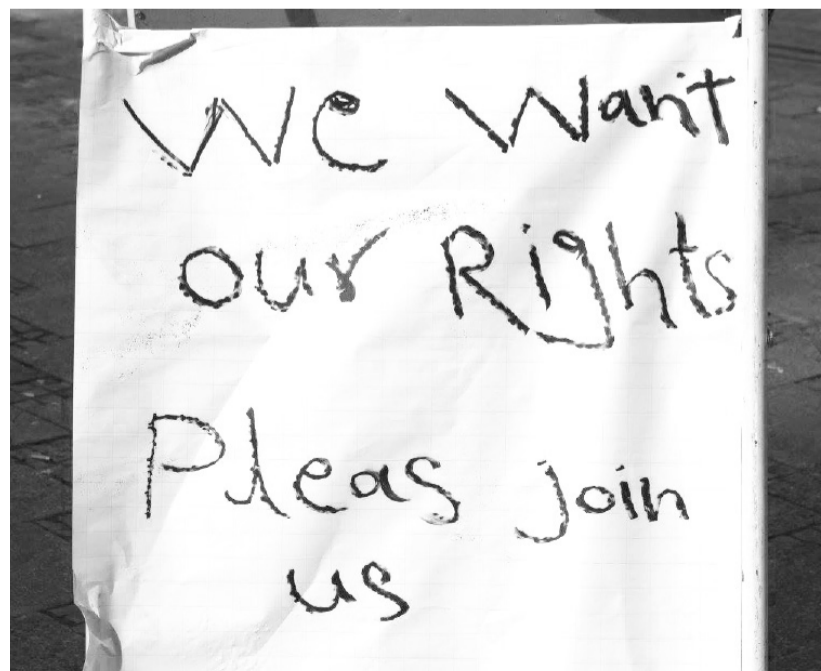 We Want
our Rights
Pleas join
us